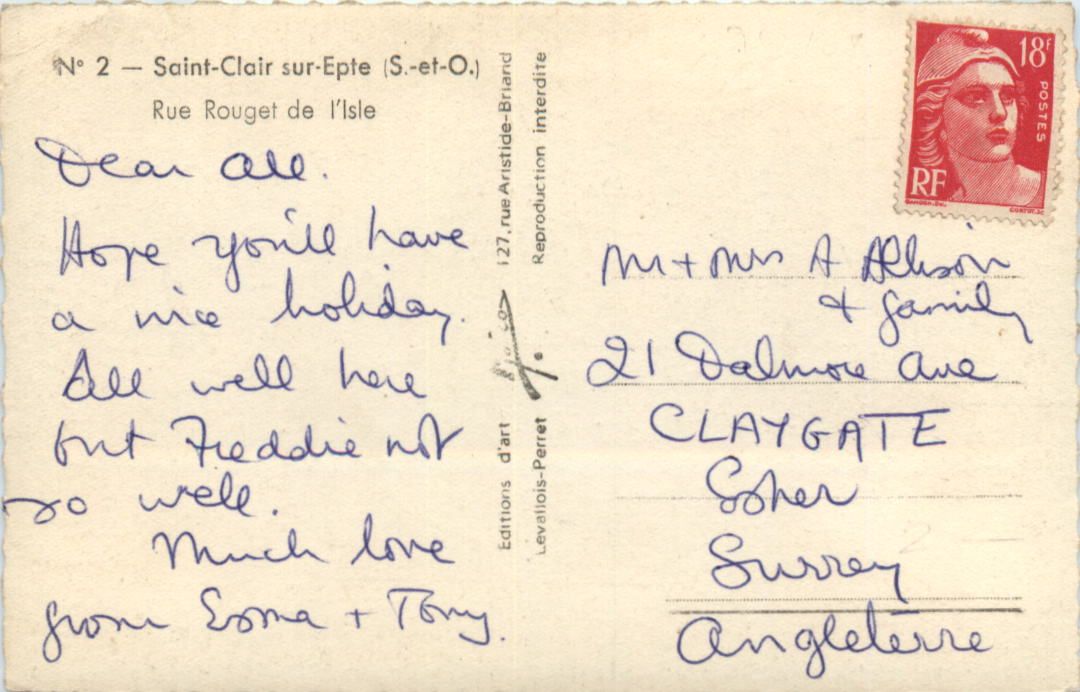 N° 2 — Saint-Clair sur-Epte (S.-et-O.)
Rue Rouget de l'Isle
Dear All.
Hope you'll have
a nice holiday.
All well here
but Freddie not
so well.
Much love
from Esma + Tony.
Editions d'art
127, rue Aristide-Briand
Levallois-Perret
Reproduction interdite
18F
POSTES
RF
Mr + Mrs A Allison
+ family
21 Dalmore Ave
CLAYGATE
Esher
Surrey
Angleterre